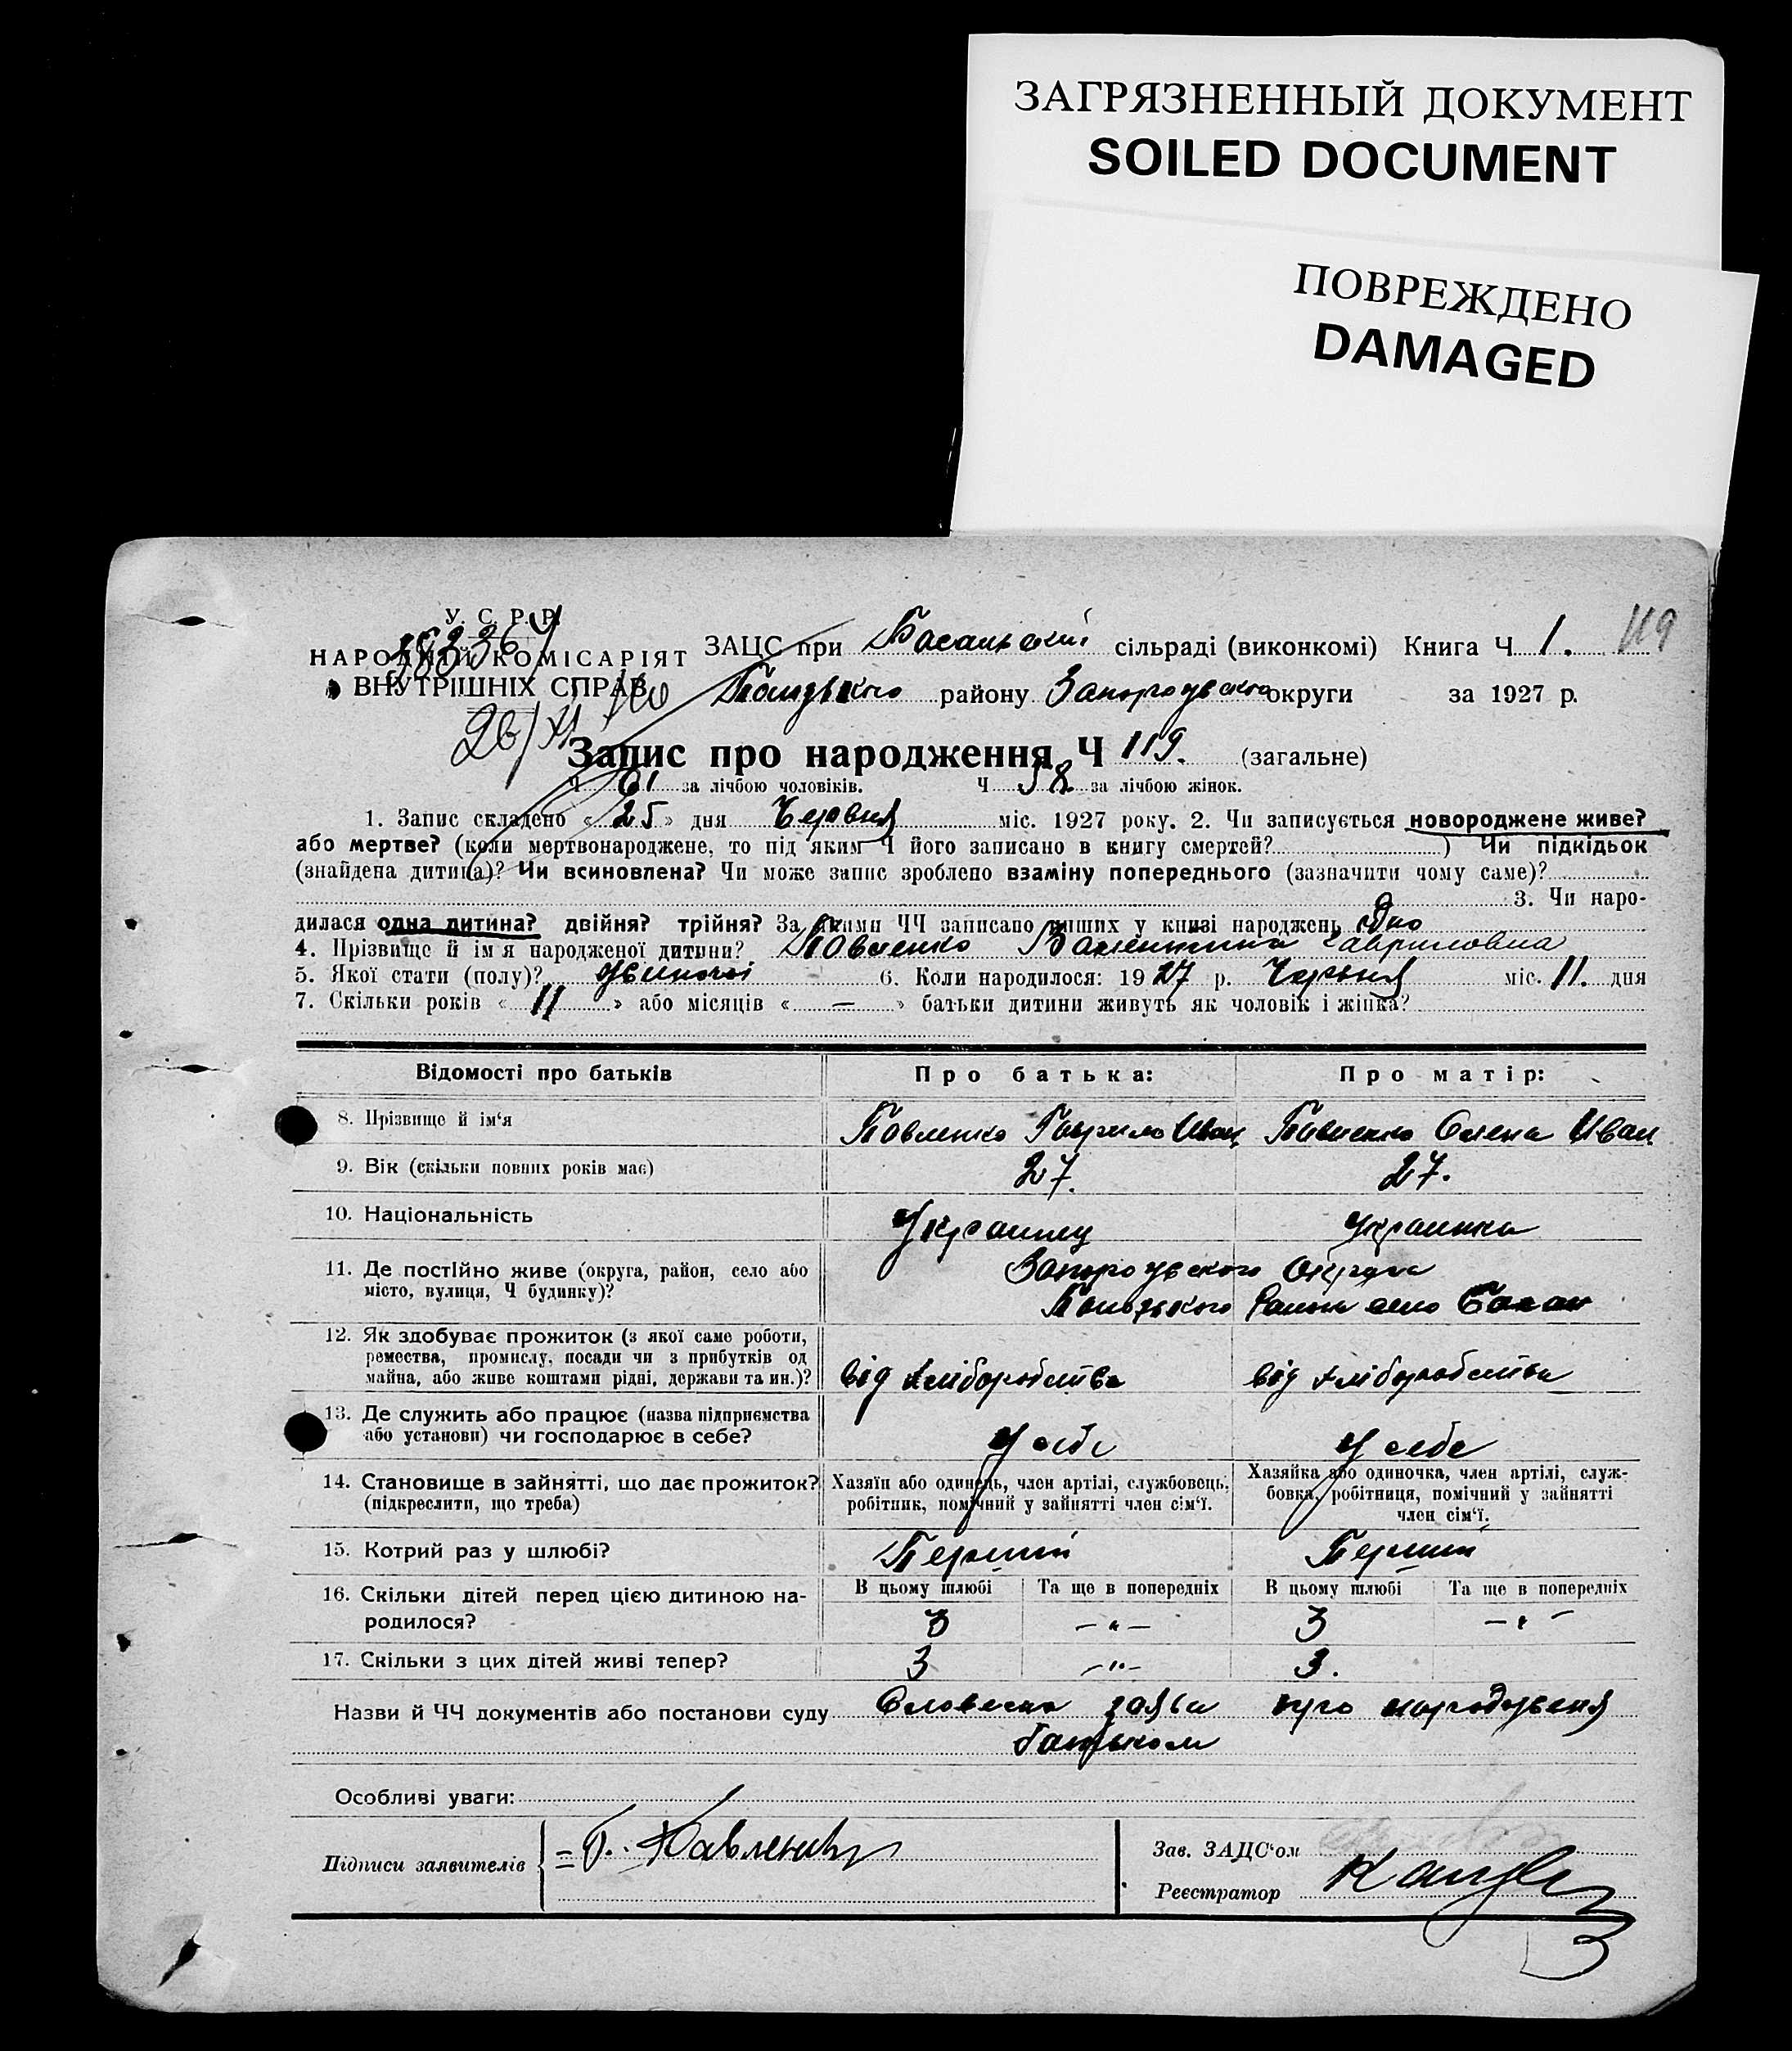 ЗАГРЯЗНЕННЫЙ ДОКУМЕНТ
SOILED DOCUMENT
ПОВРЕЖДЕНО
DAMAGED
У. С. Р. Р.
НАРОДНІЙ КОМІСАРІЯТ
ВНУТРІШНІХ СПРАВ
119
ЗАЦС при Басанській сільраді (виконкомі) Книга Ч 1.
району Запорожского округи за 1927 р.
Запис про народження Ч 119. (загальне)
Ч 61 за лічбою чоловіків. Ч 58 за лічбою жінок.
1. Запис складено « 25 » дня Червня міс. 1927 року. 2. Чи записується новороджене живе?
або мертве? (коли мертвонароджене, то під яким Ч його записано в книгу смертей? ) Чи підкідьок
(знайдена дитина)? Чи всиновлена? Чи може запис зроблено взаміну попереднього (зазначити чому саме)?
3. Чи наро-
дилася одна дитина? двійня? трійня? За якими ЧЧ записано инших у книзі народжень одно
4. Прізвище й ім'я народженої дитини? Павленко Валентина Гавриловна
5. Якої стати (полу)? 6. Коли народилося: 1927 р. Червня міс. 11. дня
7. Скільки років « 11 » або місяців « — » батьки дитини живуть як чоловік і жінка?
Відомості про батьків Про батька: Про матір:
8. Прізвище й ім'я Павленко Гаврило Иван Павленко Олена Иван
9. Вік (скільки повних років має) 27. 27.
10. Національність Украинец Украинка
11. Де постійно живе (округа, район, село або Запорожского Округа
місто, вулиця, Ч будинку)? Района село Басан
12. Як здобуває прожиток (з якої саме роботи,
ремества, промислу, посади чи з прибутків од
майна, або живе коштами рідні, держави та ин.)? від хліборобства від хліборобства
13. Де служить або працює (назва підприємства
або установи) чи господарює в себе? У себе У себе
14. Становище в зайнятті, що дає прожиток? Хазяїн або одинець, член артілі, службовець, Хазяйка або одиночка, член артілі, служ-
(підкреслити, що треба) робітник, помічний у зайнятті член сім'ї. бовка, робітниця, помічний у зайнятті
член сім'ї.
15. Котрий раз у шлюбі? Перший Перший
16. Скільки дітей перед цією дитиною на- В цьому шлюбі Та ще в попередніх В цьому шлюбі Та ще в попередніх
родилося? 3 — " — 3 — " —
17. Скільки з цих дітей живі тепер? 3 — " — 3.
Назви й ЧЧ документів або постанови суду Словесна заява про народженя
батьком
Особливі уваги:
Підписи заявителів Г. Павленко
Зав. ЗАЦС'ом
Реєстратор